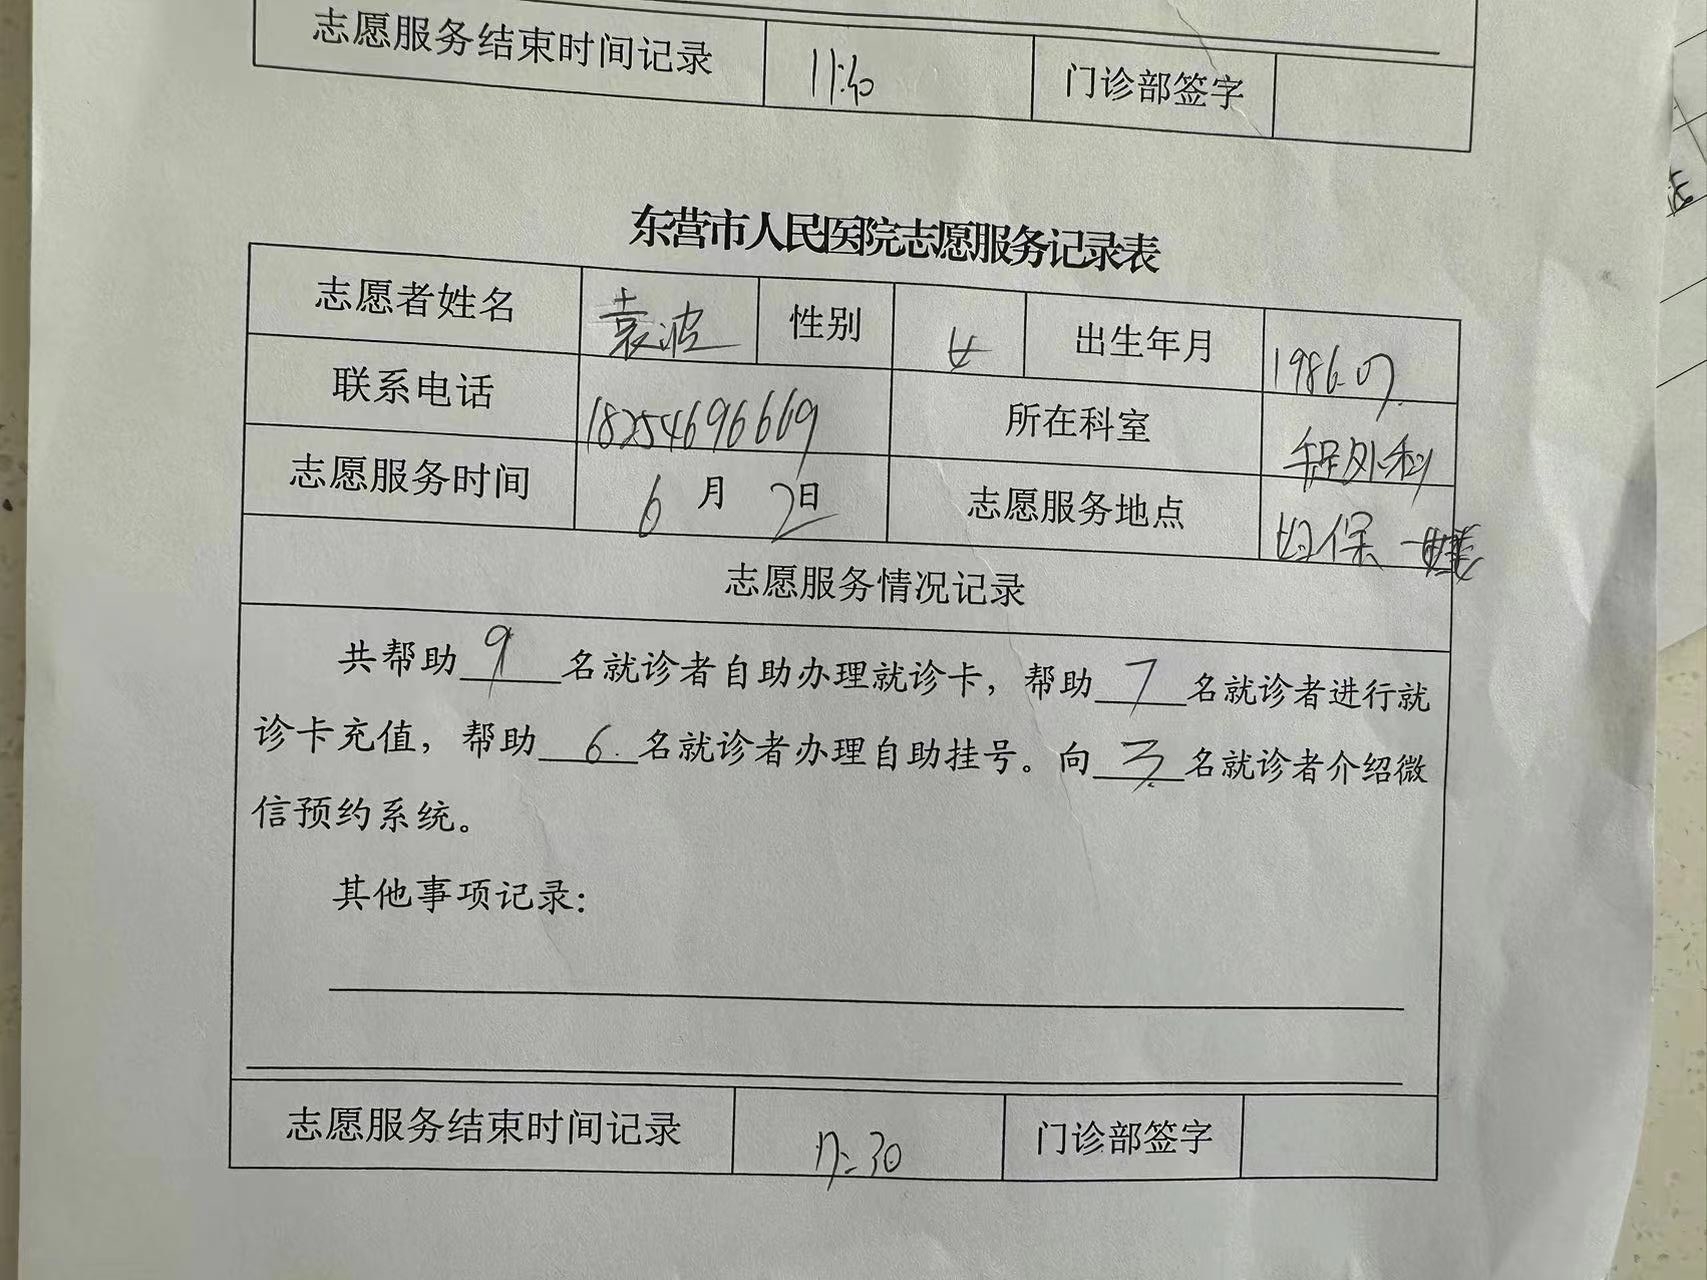 志愿服务结束时间记录 11:30 门诊部签字
东营市人民医院志愿服务记录表
志愿者姓名 袁波 性别 女 出生年月 1986.07.
联系电话 18254696669 所在科室 外科
志愿服务时间 6月2日 志愿服务地点 妇保
志愿服务情况记录
共帮助9名就诊者自助办理就诊卡，帮助7名就诊者进行就
诊卡充值，帮助6.名就诊者办理自助挂号。向3名就诊者介绍微
信预约系统。
其他事项记录：
志愿服务结束时间记录 17:30 门诊部签字